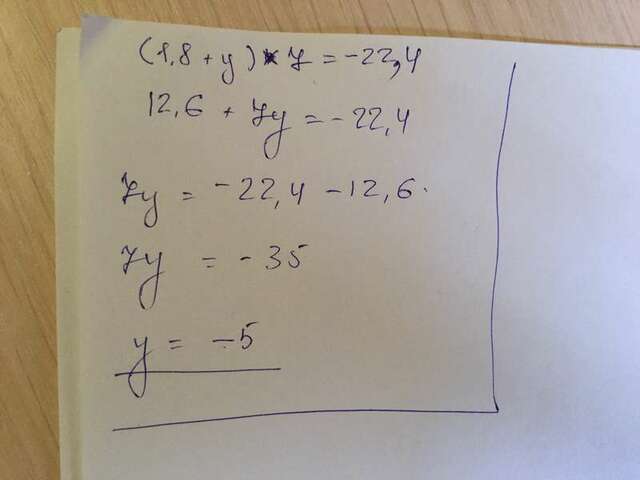 (1,8 + y) × 7 = -22,4
12,6 + 7y = -22,4
7y = -22,4 - 12,6.
7y = -35
y = -5